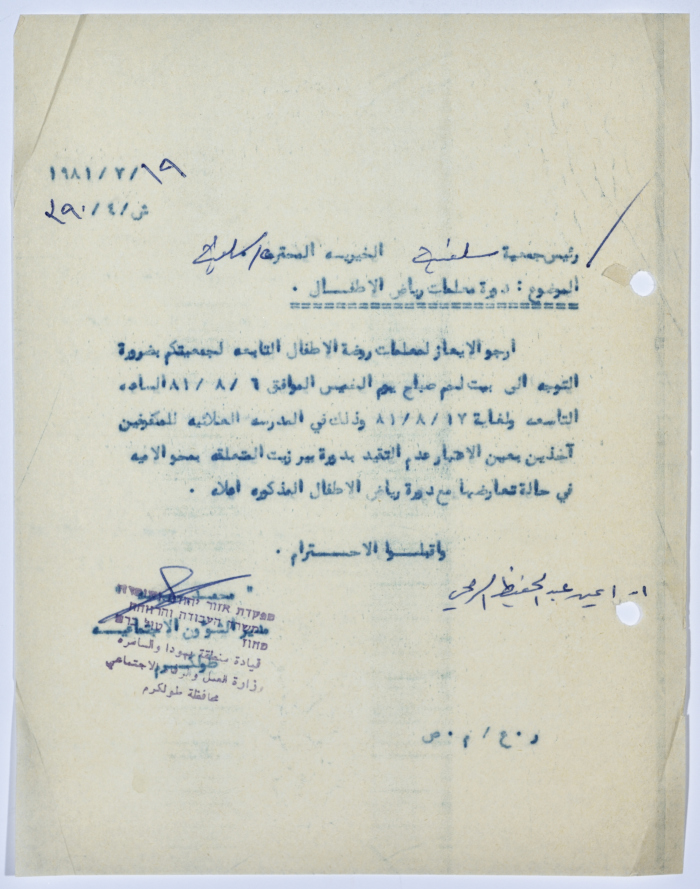 ١٩/٧/١٩٨١
ش/٤/٢٩٠
رئيس جمعية سلفيت الخيريه المحترم
الموضوع : دورة معلمات رياض الاطفال .
ارجو الايعاز لمعلمات روضة الاطفال التابعه لجمعيتكم بضرورة
التوجه الى بيت لحم صباح يوم الخميس الموافق ٦ /٨ /٨١ الساعه
التاسعه ولغاية ٨١/٨/١٧ وذلك في المدرسه العلائيه للمكفوفين
آخذين بعين الاعتبار عدم التقيد بدورة بير زيت المتعلقه بمحو الاميه
في حالة تعارضها مع دورة رياض الاطفال المذكوره اعلاه .
واقبلوا الاحترام .
عبد الحفيظ
מפקדת אזור יהודה
מדיר الشؤون الاجتماعيه
طولكرم
قيادة منطقة يهودا والسامره
وزارة العمل والاجتماعي
محافظة طولكرم
ر٠ع / م٠ص